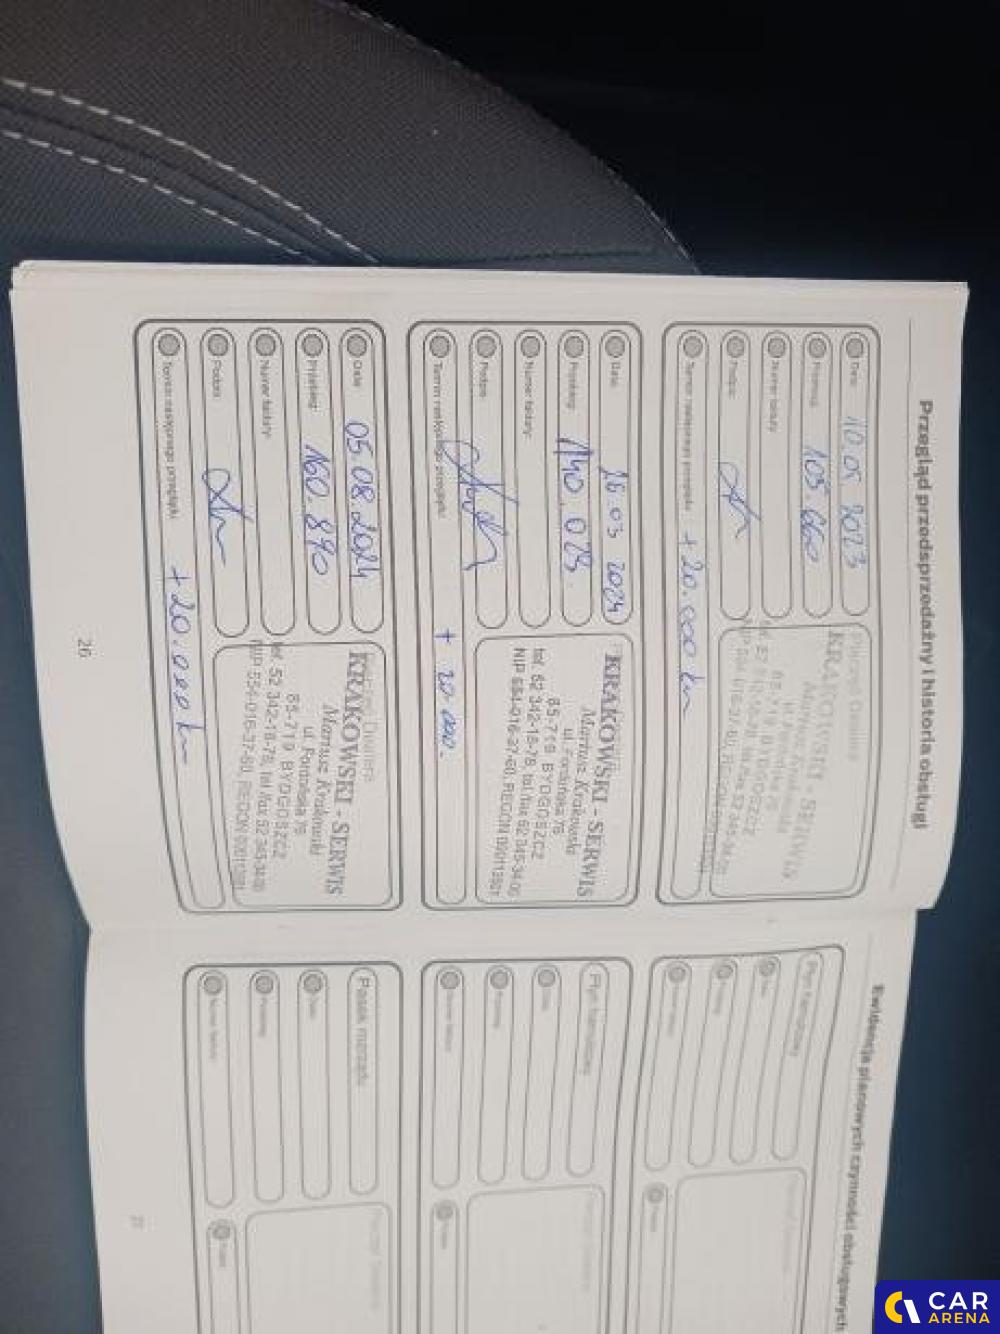 Przegląd przedsprzedażny i historia obsługi
Data:
10.05 2023
Przebieg:
103.660
Numer faktury:
Podpis:
Termin następnego przeglądu:
+ 20.000 km
KRAKOWSKI - SERWIS
Mariusz Krakowski
ul. Fordońska 76
85-719 BYDGOSZCZ
Data:
16.03 2024
Przebieg:
140.023
Numer faktury:
Podpis:
Termin następnego przeglądu:
+ 20.000.
KRAKOWSKI - SERWIS
Mariusz Krakowski
ul. Fordońska 76
85-719 BYDGOSZCZ
tel. 52 342-18-78, tel./fax 52 345-34-00
NIP 554-016-37-60, REGON
Data:
05.08.2024
Przebieg:
160.890
Numer faktury:
Podpis:
Termin następnego przeglądu:
+ 20.000 km
KRAKOWSKI - SERWIS
Mariusz Krakowski
ul. Fordońska 76
85-719 BYDGOSZCZ
tel. 52 342-18-78, tel./fax 52 345-34-00
NIP 554-016-37-60, REGON
26
Ewidencja planowych czynności obsługowych
Płyn hamulcowy
Data:
Przebieg:
Numer faktury:
Podpis:
Płyn hamulcowy
Data:
Przebieg:
Numer faktury:
Podpis:
Pasek rozrządu
Data:
Przebieg:
Numer faktury:
Podpis:
CAR
ARENA